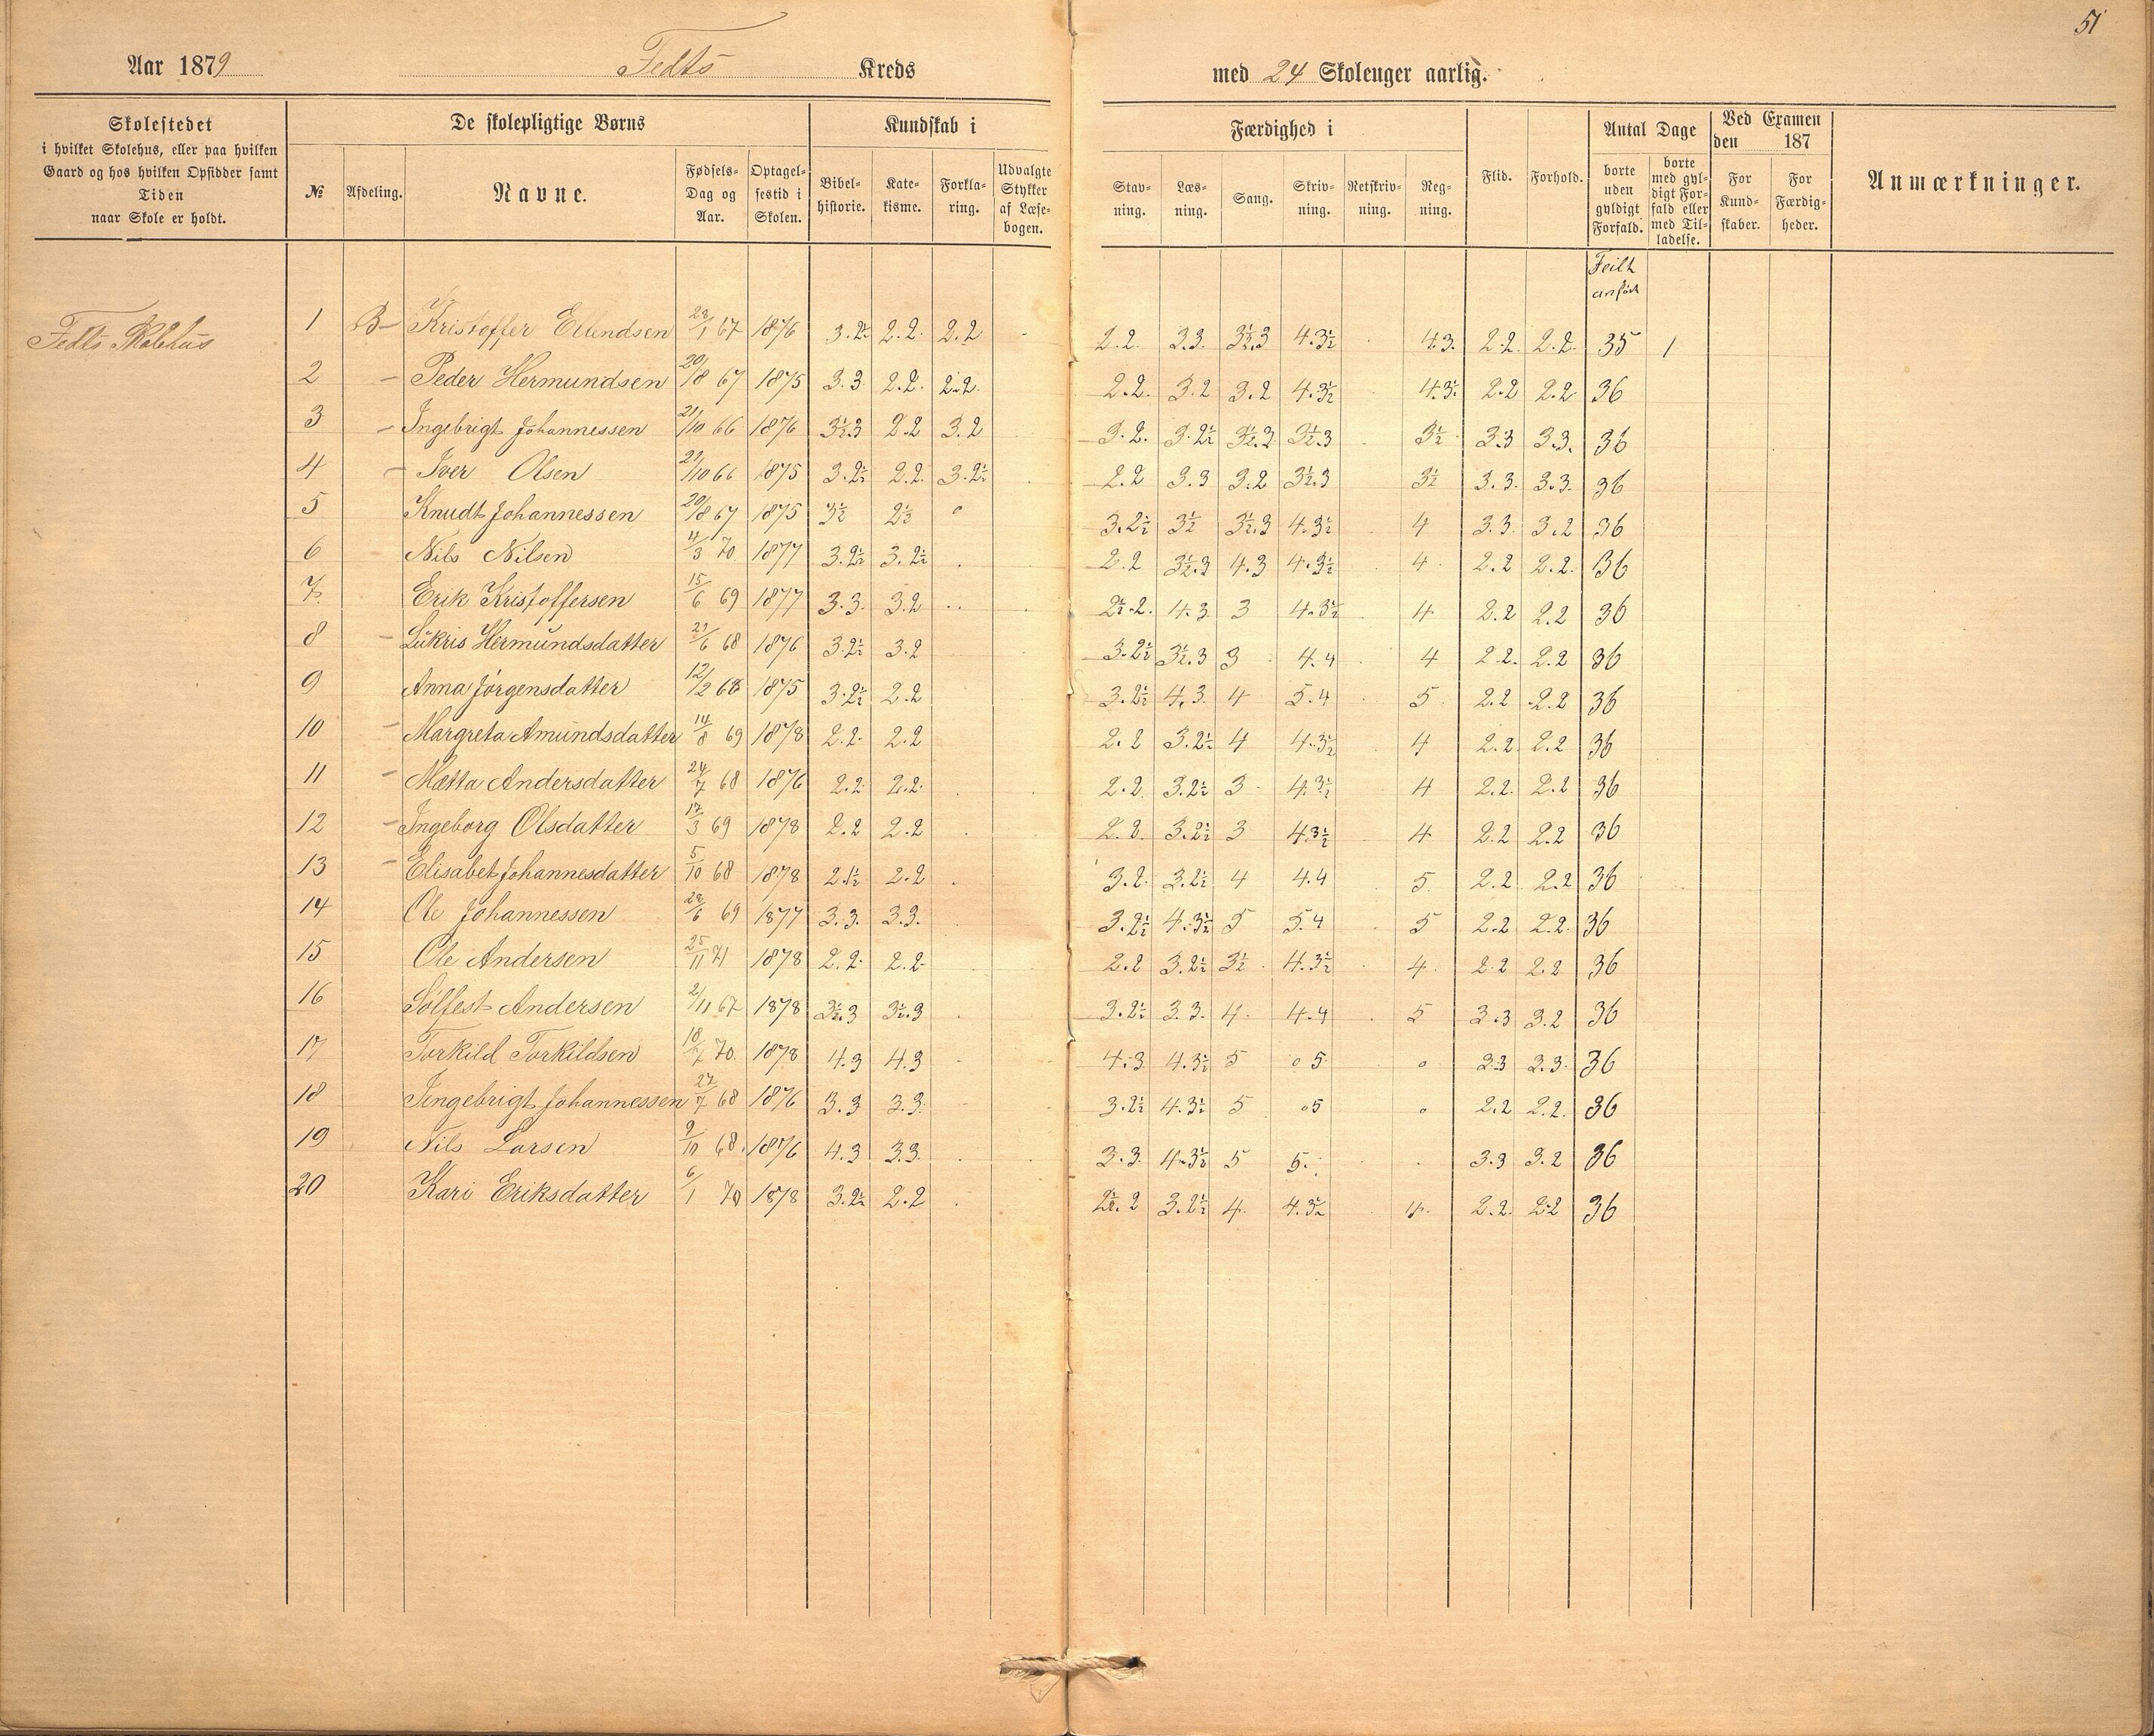 51
Aar 1879 Fedts Kreds med 24 Skoleuger aarlig.
Skolestedet
i hvilket Skolehus, eller paa hvilken
Gaard og hos hvilken Opsidder samt
Tiden
naar Skole er holdt.
De skolepligtige Børns
№ Afdeling. Navne. Fødsels-Dag og Aar. Optagelsestid i Skolen.
Kundskab i
Bibelhistorie. Katekisme. Forklaring. Udvalgte Stykker af Læsebogen.
Færdighed i
Stavning. Læsning. Sang. Skrivning. Retskrivning. Regning.
Flid. Forhold.
Antal Dage
borte uden gyldigt Forfald. borte med gyldigt Forfald eller med Tilladelse.
Ved Examen
den 187
For Kundskaber. For Færdigheder.
Anmærkninger.
Feilt
anført
Fedts Skolehus
1 B- Kristoffer Ellendsen 23/1 67 1876 3.2½ 2.2. 2.2 2.2. 3.3. 3½.3 4.3½ 4.3. 2.2. 2.2. 35 1
2 - Peder Hermundsen 20/8 67 1875 3.3. 2.2. 2.2. 2.2. 3.2 3.2 4.3½ 4.3½ 2.2 2.2 36
3 - Ingebrigt Johannessen 21/10 66 1876 3½.3 2.2 3.2 3.2. 3.2½ 3½.3 3½.3 3½ 3.3 3.3. 36
4 - Iver Olsen 21/10 66 1875 3.2½ 2.2. 3.2½ 2.2 3.3 3.2 3½.3 3½ 3.3. 3.3. 36
5 Knudt Johannessen 20/8 67 1875 3½ 2½ 0 3.2½ 3½ 3½.3 4.3½ 4 3.3. 3.2 36
6 Nils Nilsen 4/3 70 1877 3.2½ 3.2½ 2.2 3½.3 4.3 4.3½ 4 2.2 2.2. 36
7 Erik Kristoffersen 15/6 69 1877 3.3. 3.2 2½.2. 4.3 3 4.3½ 4 2.2 2.2 36
8 - Sukris Hermundsdatter 21/6 68 1876 3.2½ 3.2 3.2½ 3½.3 3 4.4 4 2.2. 2.2 36
9 Anna Jørgensdatter 12/2 68 1875 3.2½ 2.2 3.2½ 4.3. 4 5.4 5 2.2 2.2 36
10 - Margreta Amundsdatter 14/8 69 1878 2.2. 2.2 2.2 3.2½ 4 4.3½ 4 2.2. 2.2 36
11 - Mætta Andersdatter 24/7 68 1876 2.2. 2.2. 2.2. 3.2½ 3 4.3½ 4 2.2. 2.2 36
12 - Ingeborg Olsdatter 17/3 69 1878 2.2 2.2 2.2. 3.2½ 3 4.3½ 4 2.2 2.2 36
13 - Elisabet Johannesdatter 5/10 68 1878 2.1½ 2.2 3.2. 3.2½ 4 4.4 5. 2.2 2.2 36
14 Ole Johannessen 28/6 69 1877 3.3. 3.3. 3.2½ 4.3½ 5 5.4 5 2.2 2.2. 36
15 Ole Andersen 25/11 71 1878 2.2. 2.2. 2.2 3.2½ 3½ 4.3½ 4. 2.2 2.2 36
16 Sølfest Andersen 2/11 67 1878 3½.3 3½.3 3.2½ 3.3. 4. 4.4 5 3.3 3.2 36
17 Torkild Torkildsen 18/7 70 1878 4.3 4.3 4.3 4.3½ 5 0 5 0 3.3 3.3. 36
18 Iengebrigt Johannessen 27/7 68 1876 3.3 3.3. 3.2½ 4.3½ 5 0 5 0 2.2 2.2. 36
19 Nils Larsen 9/10 68. 1876 4.3 3.3. 3.3. 4.3½ 5 5. 3.3 3.2 36
20 Kari Eriksdatter 6/1 70 1878 3.2½ 2.2 2½.2 3.2½ 4. 4.3½ 4. 2.2. 2.2 36